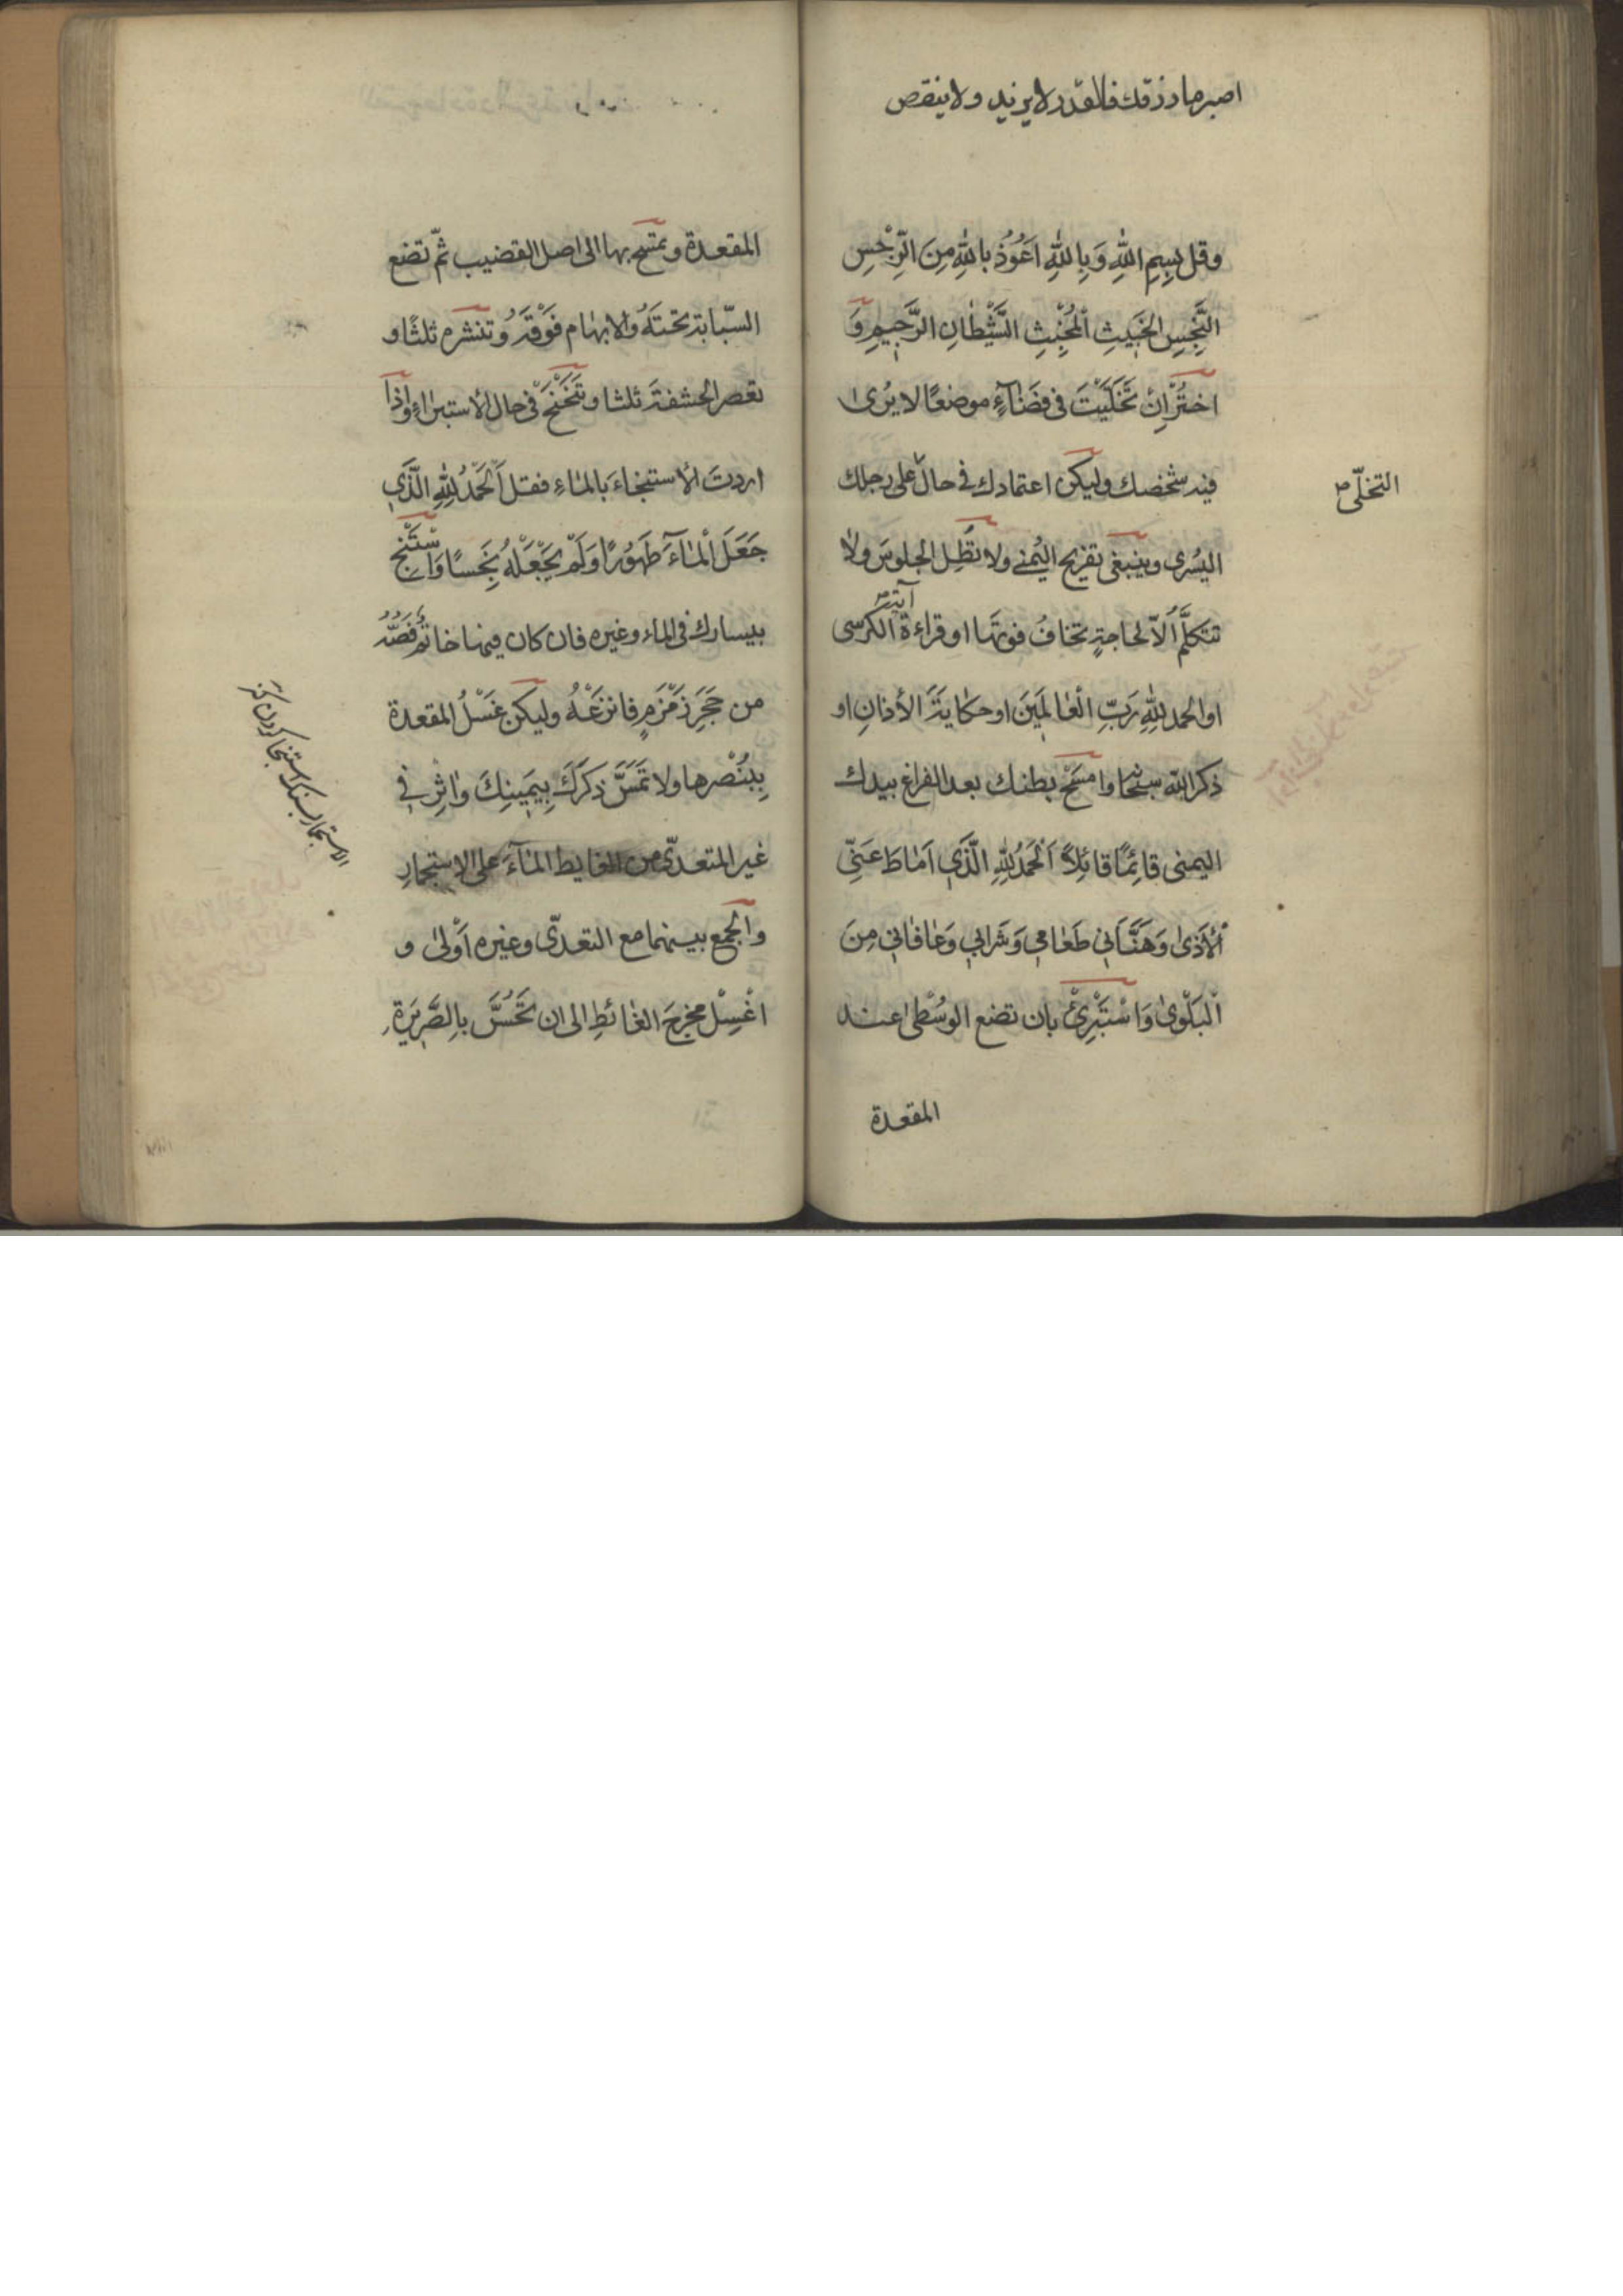 اصبر ما رزقك فالقدر لا يزيد ولا ينقص
وقل بِسِمِ اللهِ وَبِاللهِ اَعُوُذُ بِاللهِ مِنَ الرِّجْسِ
النَّجِسِ الخَبَيثِ اْلمُخْبِثِ الشَّيْطانِ الرَّجيمِ وَ
اختُرْ اِنْ تَخَلَّيْتَ فى فضَآءٍ موضعًا لا يُرى
فيه شخصك وليكن اعتمادك فى حال على رجلك
التخلّى ص
اليُسْرى وينبغى تفريج اليُمنى ولا تُطِل الجلوسَ ولا
تتكلَّمْ اِلاّ لحاجةٍ تخافُ فوتَها او قراءة الكرسى
آية ص
او الحمد للهِ رَبّ الْعالَمينَ او حكايةَ الأذانِ او
ذكر الله سبحانه وامسَحْ بطنك بعد الفراغ بيدك
اليمنى قائِمًا قائِلاً اَلْحَمدُ للهِ الَّذَى اَماطَ عَنّى
اْلأَذى وَهَنَّأَنى طَعامى وَشَرابى وَعافانى مِنَ
الْبَلْوى وَاسْتَبْرِئْ بان تضع الوُسْطى عند
المقعدة
المقعدة وتمسح بها الى اصل القضيب ثمّ تضع
السّبابة تحتَهُ والابهام فَوْقَهُ وتنتره ثلثًا و
تعصر الحشفةَ ثلثا و تَتَنَحْنَحْ فى حال الأستبراءِ واِذا
اردتَ الأستنجاءَ بالماءِ فقل اَلْحَمْدُ للهِ الَّذَى
جَعَلَ اْلمآءَ طَهُورًا وَلَمْ يَجْعَلْهُ نَجِسًا وَاسْتَنْجِ
بيسارك فى الماء وغيره فان كان فيها خاتمٌ فَصُّهُ
من حَجَرِ زَمْزَمٍ فانزعْهُ وليكن غَسْلُ المقعدة
بِبُنْصرها ولا تَمَسَّ ذكرَكَ بِيَمينِكَ واثِر فى
غير المتعدّى من الغايط المآءَ على الاستجمارِ
والجمع بينهما مع التعدّى وغيره اَوْلى و
اغْسِلْ مخرجَ الغائطِ الى ان تَحُسَّ بالصَّريرَةِ
الاستجمار بسنك استنجا كردن